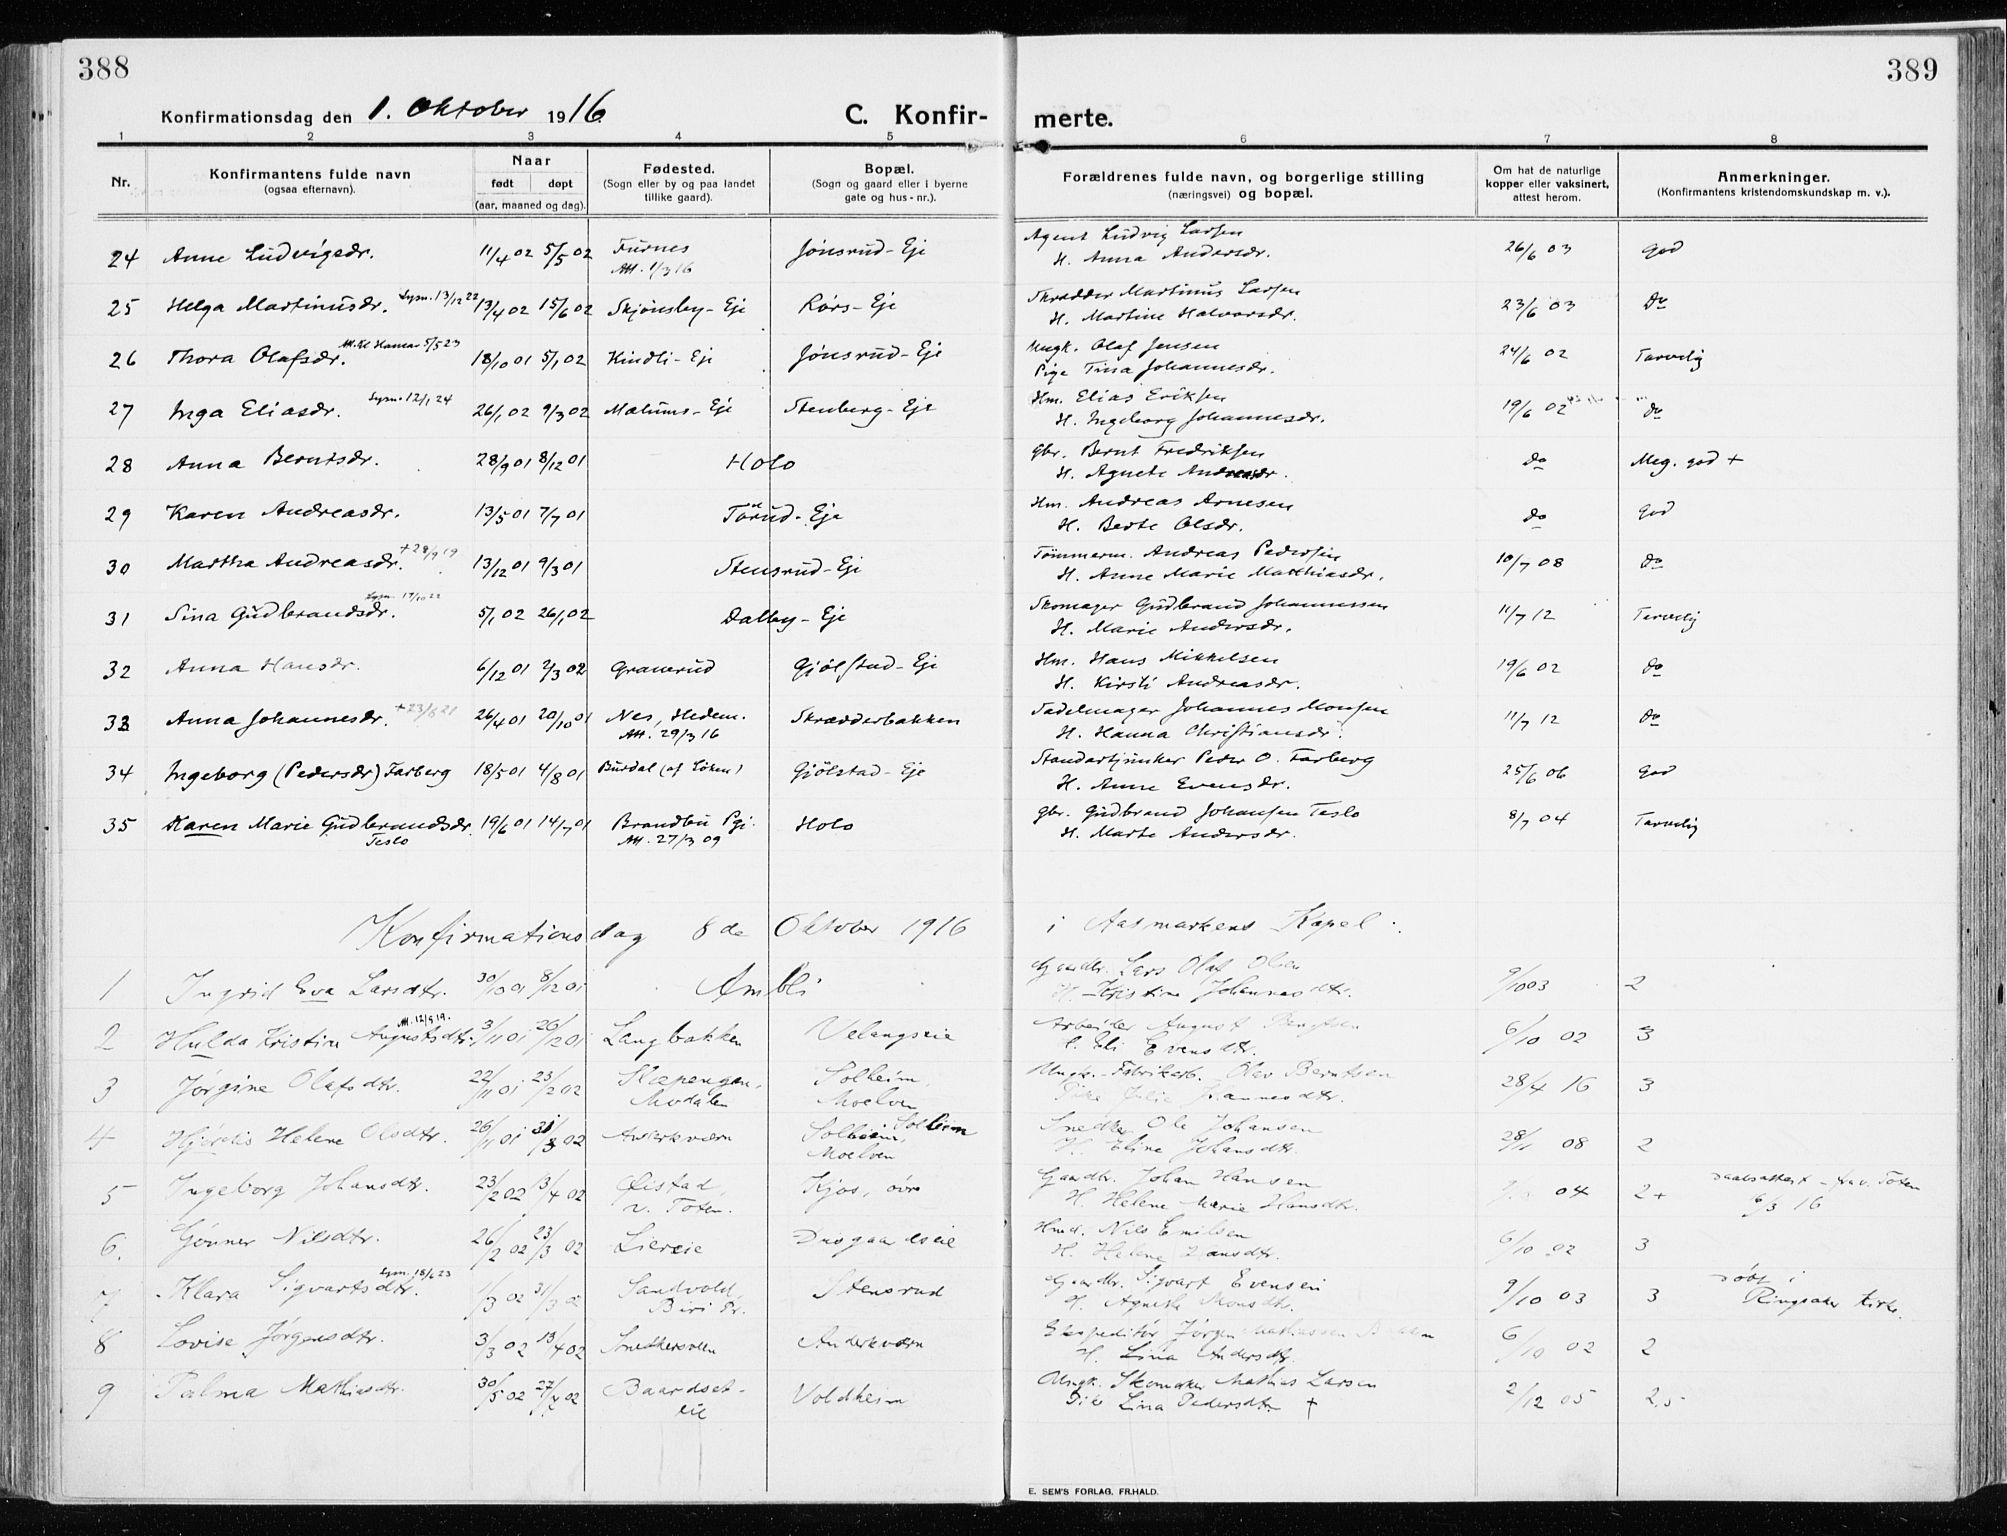 388
389
Konfirmationsdag den 1. Oktober 1916
C. Konfir-
merte.
1 2 3 4 5 6 7 8
Nr.
Konfirmantens fulde navn
(ogsaa efternavn).
Naar
født døpt
(aar, maaned og dag).
Fødested.
(Sogn eller by og paa landet
tillike gaard).
Bopæl.
(Sogn og gaard eller i byerne
gate og hus-nr.).
Forældrenes fulde navn, og borgerlige stilling
(næringsvei) og bopæl.
Om hat de naturlige
kopper eller vaksinert,
attest herom.
Anmerkninger.
(Konfirmantens kristendomskundskap m. v.).
24 Anne Ludvigsdr. 11/4 02 5/5 02 Furnes Jónsrud-Eje Agent Ludvig Larsen 26/6 03 God
Att. 1/3 16 H. Anna Andersdr.
25 Helga Martinusdr. Lysn. 13/12 22 13/4 02 15/6 02 Skjónsby-Eje Rórs-Eje Skrædder Martinus Larsen 23/6 03 Do
H. Martine Halvorsdr.
26 Thora Olafsdr. Att. til Hamar 5/5 23 18/10 01 5/1 02 Kindli-Eje Jónsrud-Eje Ungk. Olaf Jensen 24/6 02 Tarvelig
Pige Tina Johannesdr.
27 Inga Eliasdr. Lysn. 12/1 24 26/1 02 9/3 02 Mælums-Eje Stenberg-Eje Hm. Elias Eriksen 19/6 02 do
H. Ingeborg Johannesdr.
28 Anna Berntsdr. 28/9 01 8/12 01 Holo Gbr. Bernt Fredriksen do Meg. god +
H. Agnete Andreasdr.
29 Karen Andreasdr. 13/5 01 7/7 01 Tórud-Eje Hm. Andreas Arnesen do God
H. Berte Olsdr.
30 Martha Andreasdr. + 28/9 19 13/12 01 9/3 01 Stensrud-Eje Tómmerm. Andreas Pedersen 10/7 08 do
H. Anne Marie Matthiasdr.
31 Sina Gudbrandsdr. 5/1 02 26/1 02 Dalby-Eje Skomager Gudbrand Johannessen 11/7 12 Tarvelig
H. Marie Andersdr.
32 Anna Hansdr. 6/12 01 2/3 02 Granerud Gjólstad-Eje Hm. Hans Mikkelsen 19/6 02 do
H. Kirsti Andreasdr.
33 Anna Johannesdr. 26/4 01 20/10 01 Nes, Hedem. Skrædderbakken Sadelmager Johannes Monsen 11/7 12 do
Att. 29/3 16 H. Hanna Christiansdr.
34 Ingeborg (Pedersdr) Farberg 18/5 01 4/8 01 Burdal (af Løken) Gjólstad-Eje Standartjunker Peder O. Farberg 25/6 06 God
H. Anne Evensdr.
35 Karen Marie Gudbrandsdr. 19/6 01 14/7 01 Brandbu Pgj. Holo Gbr. Gudbrand Johansen Teslo 8/7 04 Tarvelig
Teslo Att. 27/3 09 H. Marte Andersdr.
Konfirmationsdag 8de Oktober 1916 i Aasmarkens Kapel.
1 Ingrid Eva Larsdtr. 30/10 01 8/12 01 Ambli Gaardbr. Lars Olaf Olsen 9/10 03 2
H. Kristine Johannesdtr.
2 Hulda Kristine Augustsdtr. 3/11 01 26/12 01 Langbakken Velangseie Arbeider August Bengtsen 6/10 02 3
H. Eli Evensdtr.
3 Jørgine Olafsdtr. 22/11 01 23/2 02 Solheim, Ungk. Fabrikarb. Olav Berntsen 28/4 16 3
Modalen Moelven Pike Julie
4 Hjørdis Helene Olsdtr. 26/11 01 31/3 02 Solheim, Solheim Snedker Ole Johansen 28/11 08 2
Moelven H. Eline Johansdtr.
5 Ingeborg Johansdtr. 23/2 02 13/4 02 Øistad, Kjos, øvre Gaardbr. Johan Hansen 04 2+
v. Toten. H. Helene Marie Hansdtr. 6/3 16
6. Gunner Nilsdtr. 26/2 02 23/3 02 Liereie Hmd. Nils Emilsen 6/10 02 3
H. Helene Hansdtr.
7 Klara Sigvartsdtr. Lysn. 18/6 23 1/3 02 31/3 02 Sandvold, Stensrud Gaardbr. Sigvart Evensen 9/10 03 3 Døbt i
Biri Pr. H. Agnethe Monsdtr. Ringsaker kirke.
8 Lovise Jørgensdtr. 3/3 02 13/4 02 Smedkersveen Anderkværn Ekspeditør Jørgen Mathiassen 6/10 02 2
H. Lina Andersdtr.
9 Palma Mathiasdtr. 30/5 02 Baardset- Voldheim Ungk. Skomaker Mathias Larsen 2/12 05 2,5
eie Pike Lina Pedersdtr. +
E. SEM'S FORLAG, FR.HALD.